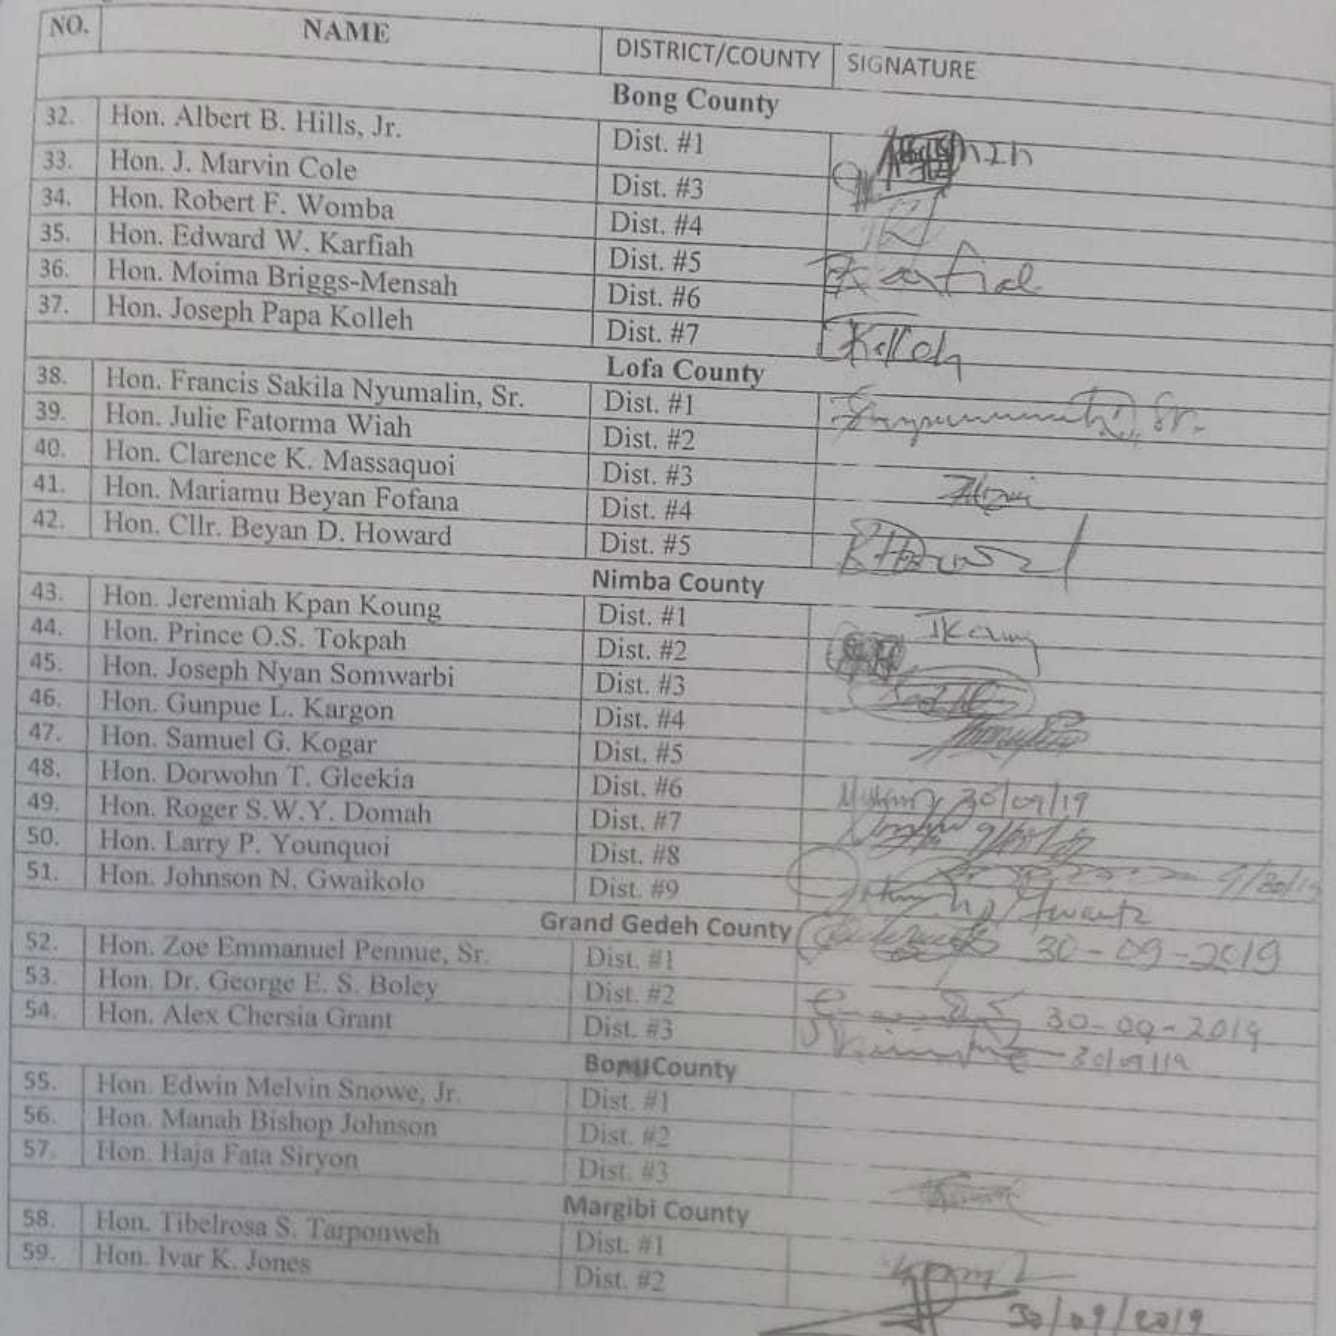 NO. NAME DISTRICT/COUNTY SIGNATURE
Bong County
32. Hon. Albert B. Hills, Jr. Dist. #1
33. Hon. J. Marvin Cole Dist. #3
34. Hon. Robert F. Womba Dist. #4
35. Hon. Edward W. Karfiah Dist. #5
36. Hon. Moima Briggs-Mensah Dist. #6
37. Hon. Joseph Papa Kolleh Dist. #7 Kolleh
Lofa County
38. Hon. Francis Sakila Nyumalin, Sr. Dist. #1 Sr.
39. Hon. Julie Fatorma Wiah Dist. #2
40. Hon. Clarence K. Massaquoi Dist. #3
41. Hon. Mariamu Beyan Fofana Dist. #4
42. Hon. Cllr. Beyan D. Howard Dist. #5
Nimba County
43. Hon. Jeremiah Kpan Koung Dist. #1
44. Hon. Prince O.S. Tokpah Dist. #2
45. Hon. Joseph Nyan Somwarbi Dist. #3
46. Hon. Gunpue L. Kargon Dist. #4
47. Hon. Samuel G. Kogar Dist. #5
48. Hon. Dorwohn T. Gleekia Dist. #6 30/09/19
49. Hon. Roger S.W.Y. Domah Dist. #7
50. Hon. Larry P. Younquoi Dist. #8 9/30/19
51. Hon. Johnson N. Gwaikolo Dist. #9
Grand Gedeh County
52. Hon. Zoe Emmanuel Pennue, Sr. Dist. #1 30-09-2019
53. Hon. Dr. George E. S. Boley Dist. #2 30-09-2019
54. Hon. Alex Chersia Grant Dist. #3 30/09/19
County
55. Hon. Edwin Melvin Snowe, Jr. Dist. #1
56. Hon. Manah Bishop Johnson Dist. #2
57. Hon. Haja Fata Siryon Dist. #3
Margibi County
58. Hon. Tibelrosa S. Tarponweh Dist. #1
59. Hon. Ivar K. Jones Dist. #2
30/09/2019